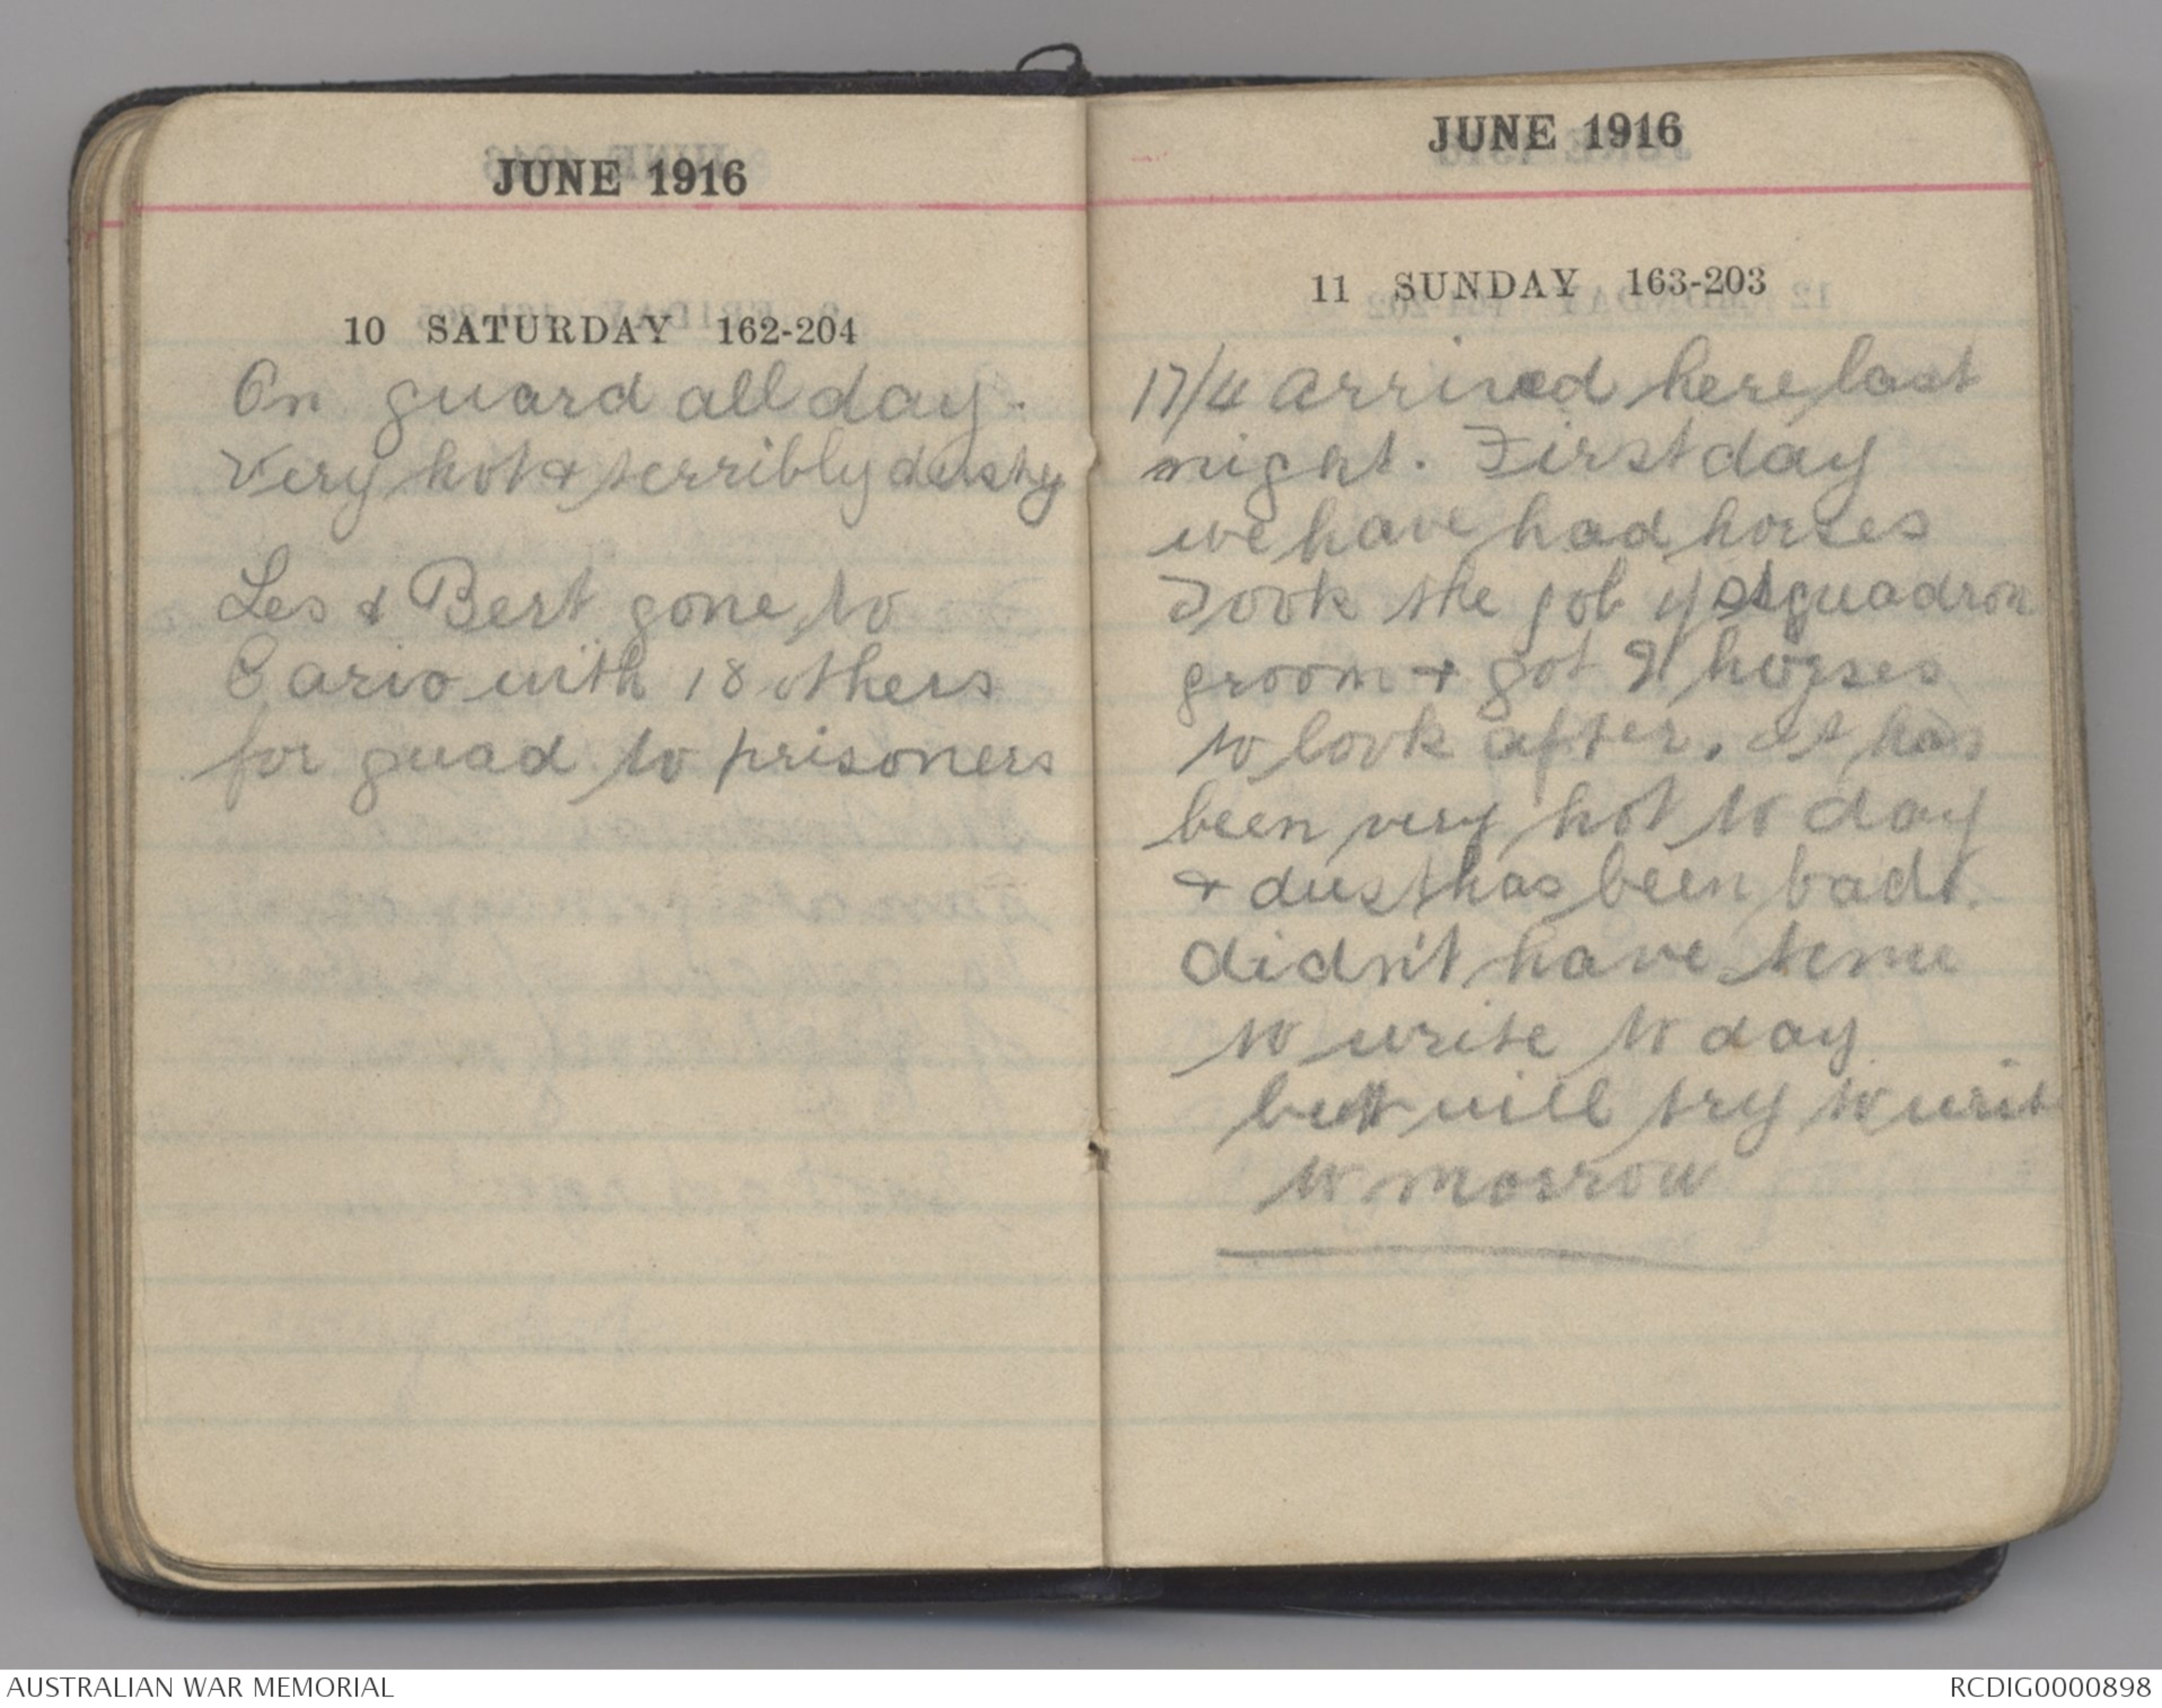 JUNE 1916
10 SATURDAY 162-204
On guard all day.
Very hot & terribly dusty
Les & Bert gone to
Cario with 18 others
for guad to prisoners
JUNE 1916
11 SUNDAY 163-203
17/4 arrived here last
night. First day
we have had horses
Took the job of squadron
groom & got 9 horses
to look after. It has
been very hot to day
& dust has been bad.
didn't have time
to write to day
but will try to write
to morrow
AUSTRALIAN WAR MEMORIAL
RCDIG0000898